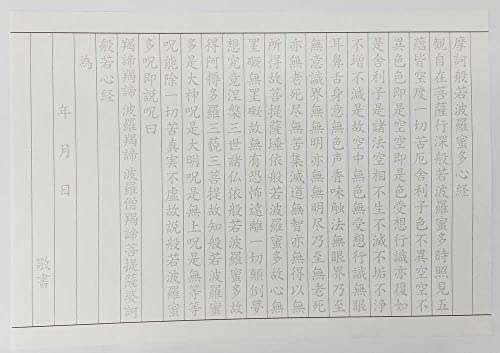 摩訶般若波羅蜜多心経
観自在菩薩行深般若波羅蜜多時照見五
蘊皆空度一切苦厄舎利子色不異空空不
異色色即是空空即是色受想行識亦復如
是舎利子是諸法空相不生不滅不垢不浄
不増不減是故空中無色無受想行識無眼
耳鼻舌身意無色声香味触法無眼界乃至
無意識界無無明亦無無明尽乃至無老死
亦無老死尽無苦集滅道無智亦無得以無
所得故菩提薩埵依般若波羅蜜多故心無
罣礙無罣礙故無有恐怖遠離一切顛倒夢
想究竟涅槃三世諸仏依般若波羅蜜多故
得阿耨多羅三藐三菩提故知般若波羅蜜
多是大神呪是大明呪是無上呪是無等等
呪能除一切苦真実不虚故説般若波羅蜜
多呪即説呪曰
羯諦羯諦 波羅羯諦 波羅僧羯諦 菩提薩婆訶
般若心経
為
年 月 日
敬書